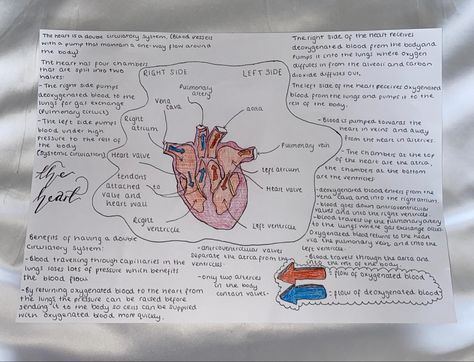 The heart is a double circulatory system. (Blood vessels
with a pump that maintain a one-way flow around
the body)
The heart has four chambers
that are split into two
halves:
- The right side pumps
deoxygenated blood to the
lungs for gas exchange
(Pulmonary circuit)
- The left side pumps
blood under high
pressure to the rest of
the body.
(Systemic circulation)
the
heart
Benefits of having a double
circulatory system:
- Blood travelling through capillaries in the
lungs loses lots of pressure which benefits
the blood flow.
- By returning oxygenated blood to the heart from
the lungs the pressure can be raised before
sending it to the body so cells can be supplied
with oxygenated blood more quickly.
RIGHT SIDE
LEFT SIDE
Pulmonary
artery
Vena
cava
aorta
Right
atrium
Pulmonary vein
Heart valve
left atrium
tendons
attached to
valve and
heart wall
Heart valve
Right
ventricle
Left ventricle
- atrioventricular valves
separate the atria from the
ventricles
- only two arteries
in the body
contain valves
The right side of the heart receives
deoxygenated blood from the body and
pumps it into the lungs where oxygen
diffuses in from the alveoli and carbon
dioxide diffuses out.
The left side of the heart receives oxygenated
blood from the lungs and pumps it to the
rest of the body.
- Blood is pumped towards the
heart in veins and away
from the heart in arteries.
- The chambers at the top
of the heart are the atria,
the chambers at the bottom
are the ventricles
- deoxygenated blood enters from the
vena cava and into the right atrium.
- blood goes down atrioventricular
valves and into the right ventricle.
- Blood travels up the pulmonary artery
to the lungs where gas exchange occurs
Oxygenated blood returns to the heart
via the pulmonary vein, and into the
left ventricle.
- Blood travels through the aorta and
into the rest of the body.
= flow of oxygenated blood
= flow of deoxygenated blood